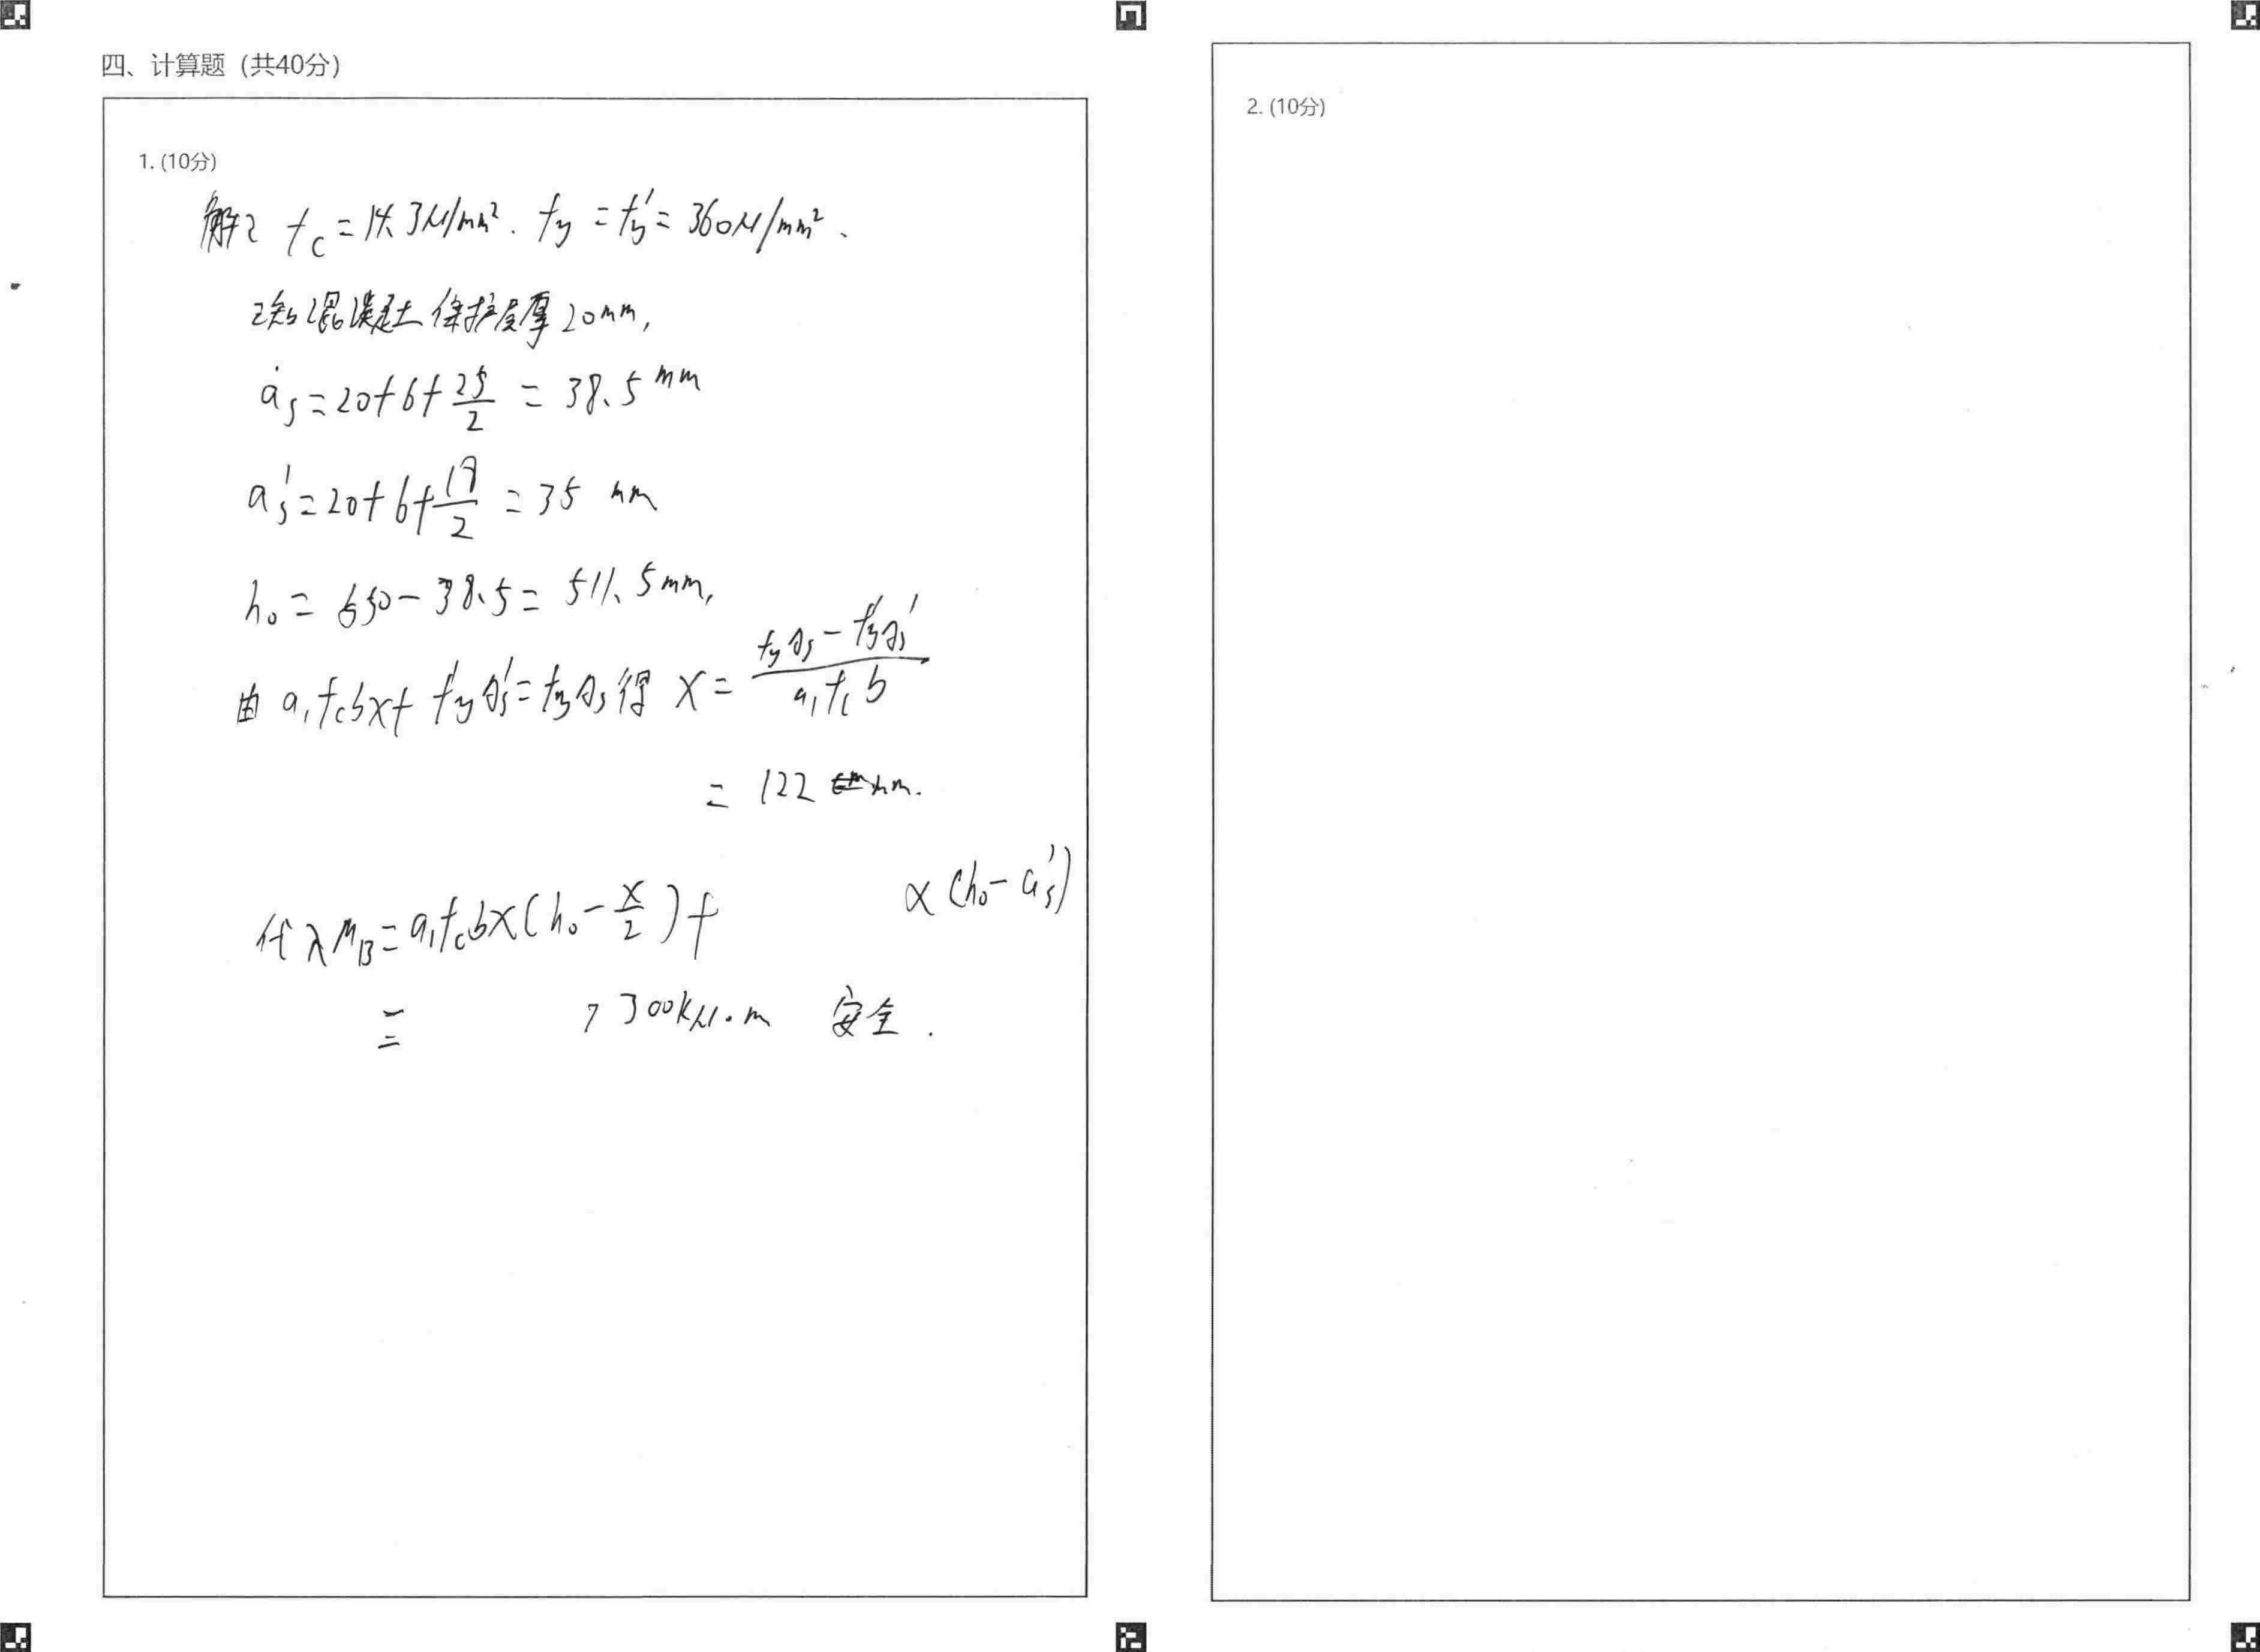 四、计算题 (共40分)
1. (10分)
解: fc = 14.3N/mm². fy = fy' = 360N/mm².
已知混凝土保护层厚20mm,
as = 20+6+25/2 = 38.5mm
as' = 20+6+18/2 = 35 mm
h₀ = 550-38.5 = 511.5mm,
由 a₁fcbx + fy'As' = fyAs 得 x = (fyAs - fy'As')/(a₁fcb)
= 122 mm.
代入 MB = a₁fcbx(h₀ - x/2) + x (h₀ - as')
= > 300kN·m 安全.
2. (10分)